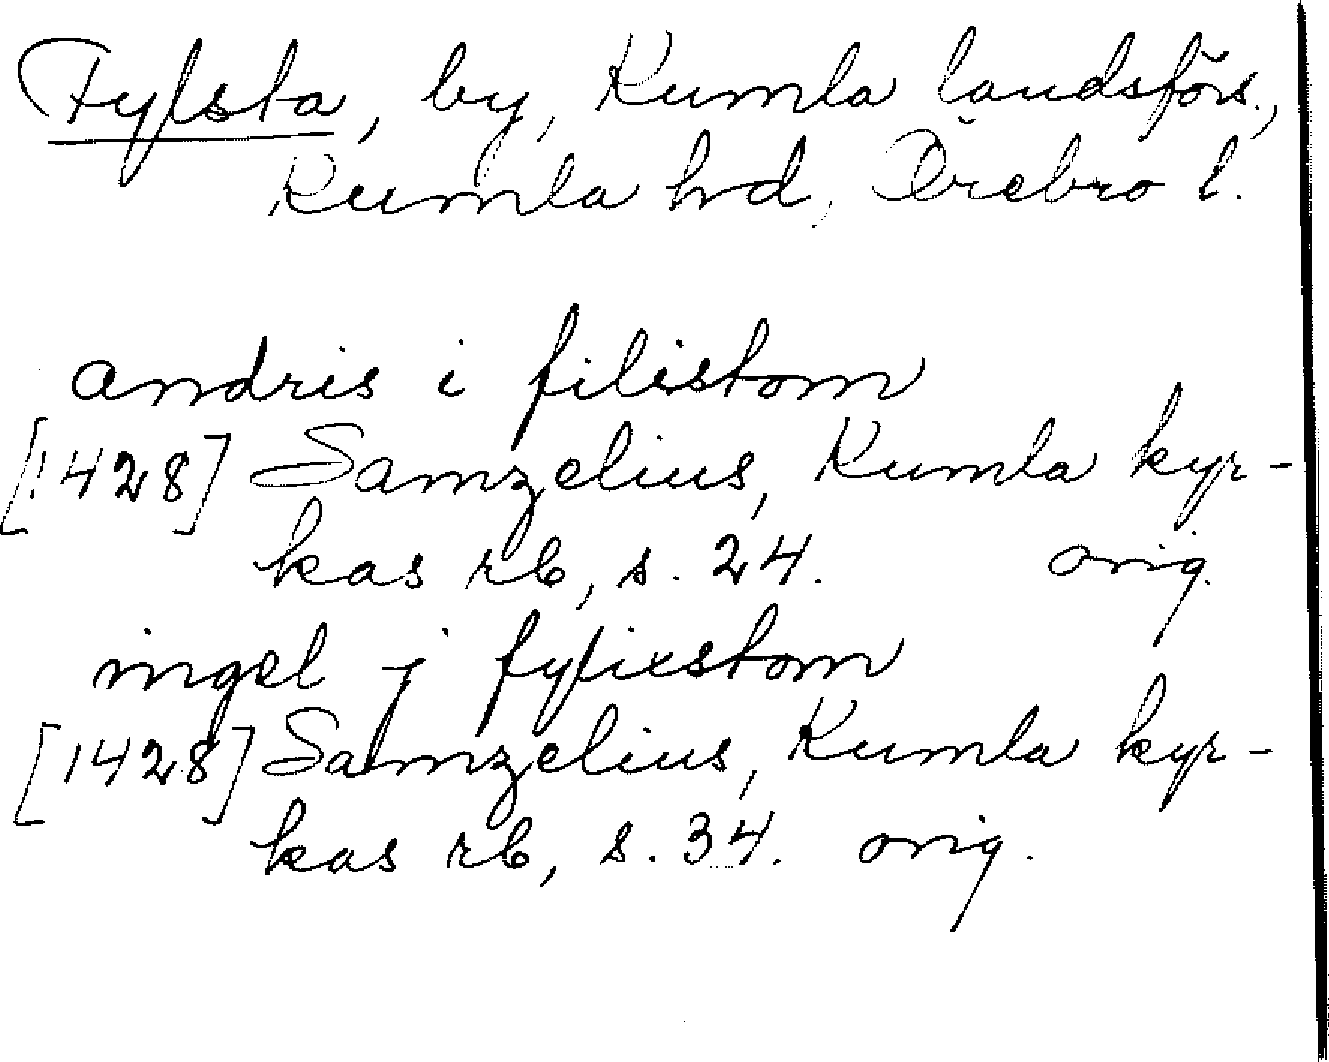 Fylsta, by, Kumla landsförs.,
Kumla hd, Örebro l.
andris i filistom
[1428] Samzelius, Kumla kyr-
kas rb, s. 24. orig.
ingel j fylixstom
[1428] Samzelius, Kumla kyr-
kas rb, s. 34. orig.